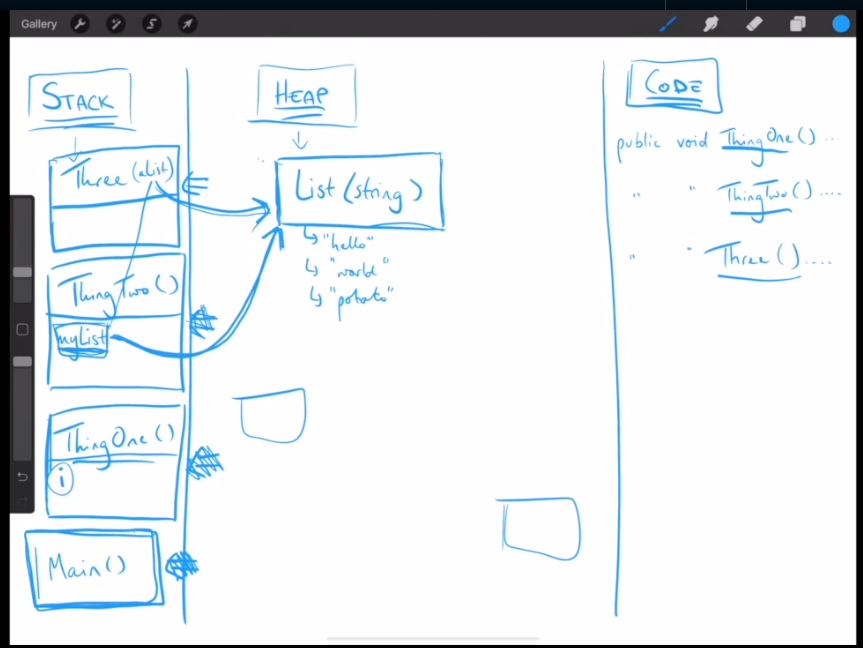 Gallery
STACK
Three (aList)
ThingTwo()
myList
ThingOne()
i
Main()
HEAP
List (string)
"hello"
"world"
"potato"
CODE
public void ThingOne() ...
" " ThingTwo() ....
" " Three() ....